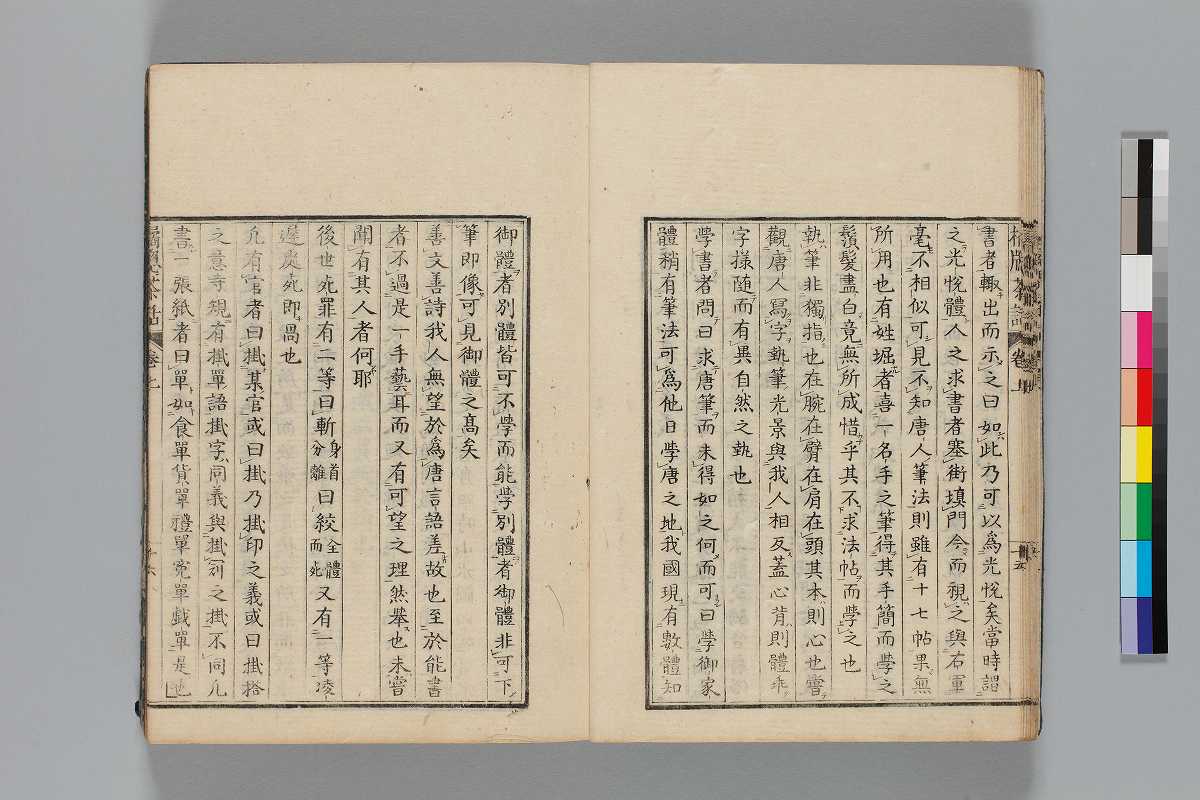 書者輙出而示之曰如此乃可以爲光悅矣當時謂
之光悅體人之求書者塞街塡門今而視之與右軍
毫不相似可見不知唐人筆法則雖有十七帖果無
所用也有姓堀者喜一名手之筆得其手簡而學之
鬚髮盡白竟無所成惜乎其不求法帖而學之也
執筆非獨指也在腕在臂在肩在頭其本則心也嘗
觀唐人寫字執筆光景與我人相反蓋心背則體乖
字樣随而有異自然之埶也
學書者問曰求唐筆而未得如之何而可曰學御家
體稍有筆法可爲他日學唐之地我國現有數體知
御體者別體皆可不學而能學別體者御體非可下
筆即像可見御體之髙矣
善文善詩我人無望於爲唐言語差故也至於能書
者不過是一手藝耳而又有可望之理然擧也未嘗
聞有其人者何耶
後世死罪有二等曰斬身首分離曰絞全體而死又有一等凌
遲處死即咼也
凢有官者曰掛某官或曰掛乃掛印之義或曰掛搭
之意寺規有掛單語掛字同義與掛列之掛不同凢
書一張紙者曰單如食單貨單禮單寃單戯單是也
茶話
卷上